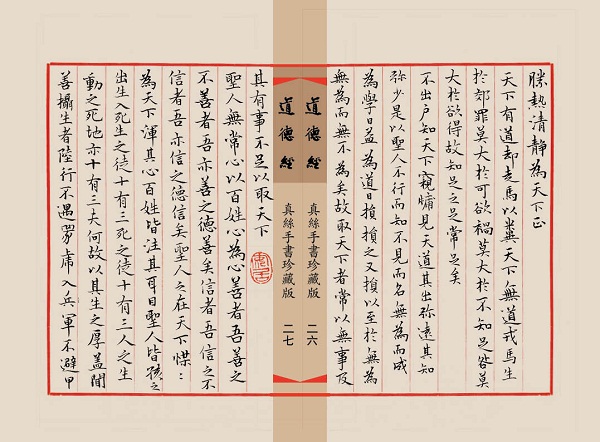 勝熱清靜為天下正
天下有道却走馬以糞天下無道戎馬生
於郊罪莫大於可欲禍莫大於不知足咎莫
大於欲得故知足之足常足矣
不出户知天下窺牖見天道其出弥遠其知
弥少是以聖人不行而知不見而名無為而成
為學日益為道日損損之又損以至於無為
無為而無不為矣故取天下者常以無事及
道德經 真絲手書珍藏版 二六
道德經 真絲手書珍藏版 二七
其有事不足以取天下
聖人無常心以百姓心為心善者吾善之
不善者吾亦善之德善矣信者吾信之不
信者吾亦信之德信矣聖人之在天下惵:
為天下渾其心百姓皆注其耳目聖人皆孩之
出生入死生之徒十有三死之徒十有三人之生
動之死地亦十有三夫何故以其生之厚蓋聞
善攝生者陸行不遇兕虎入兵軍不避甲